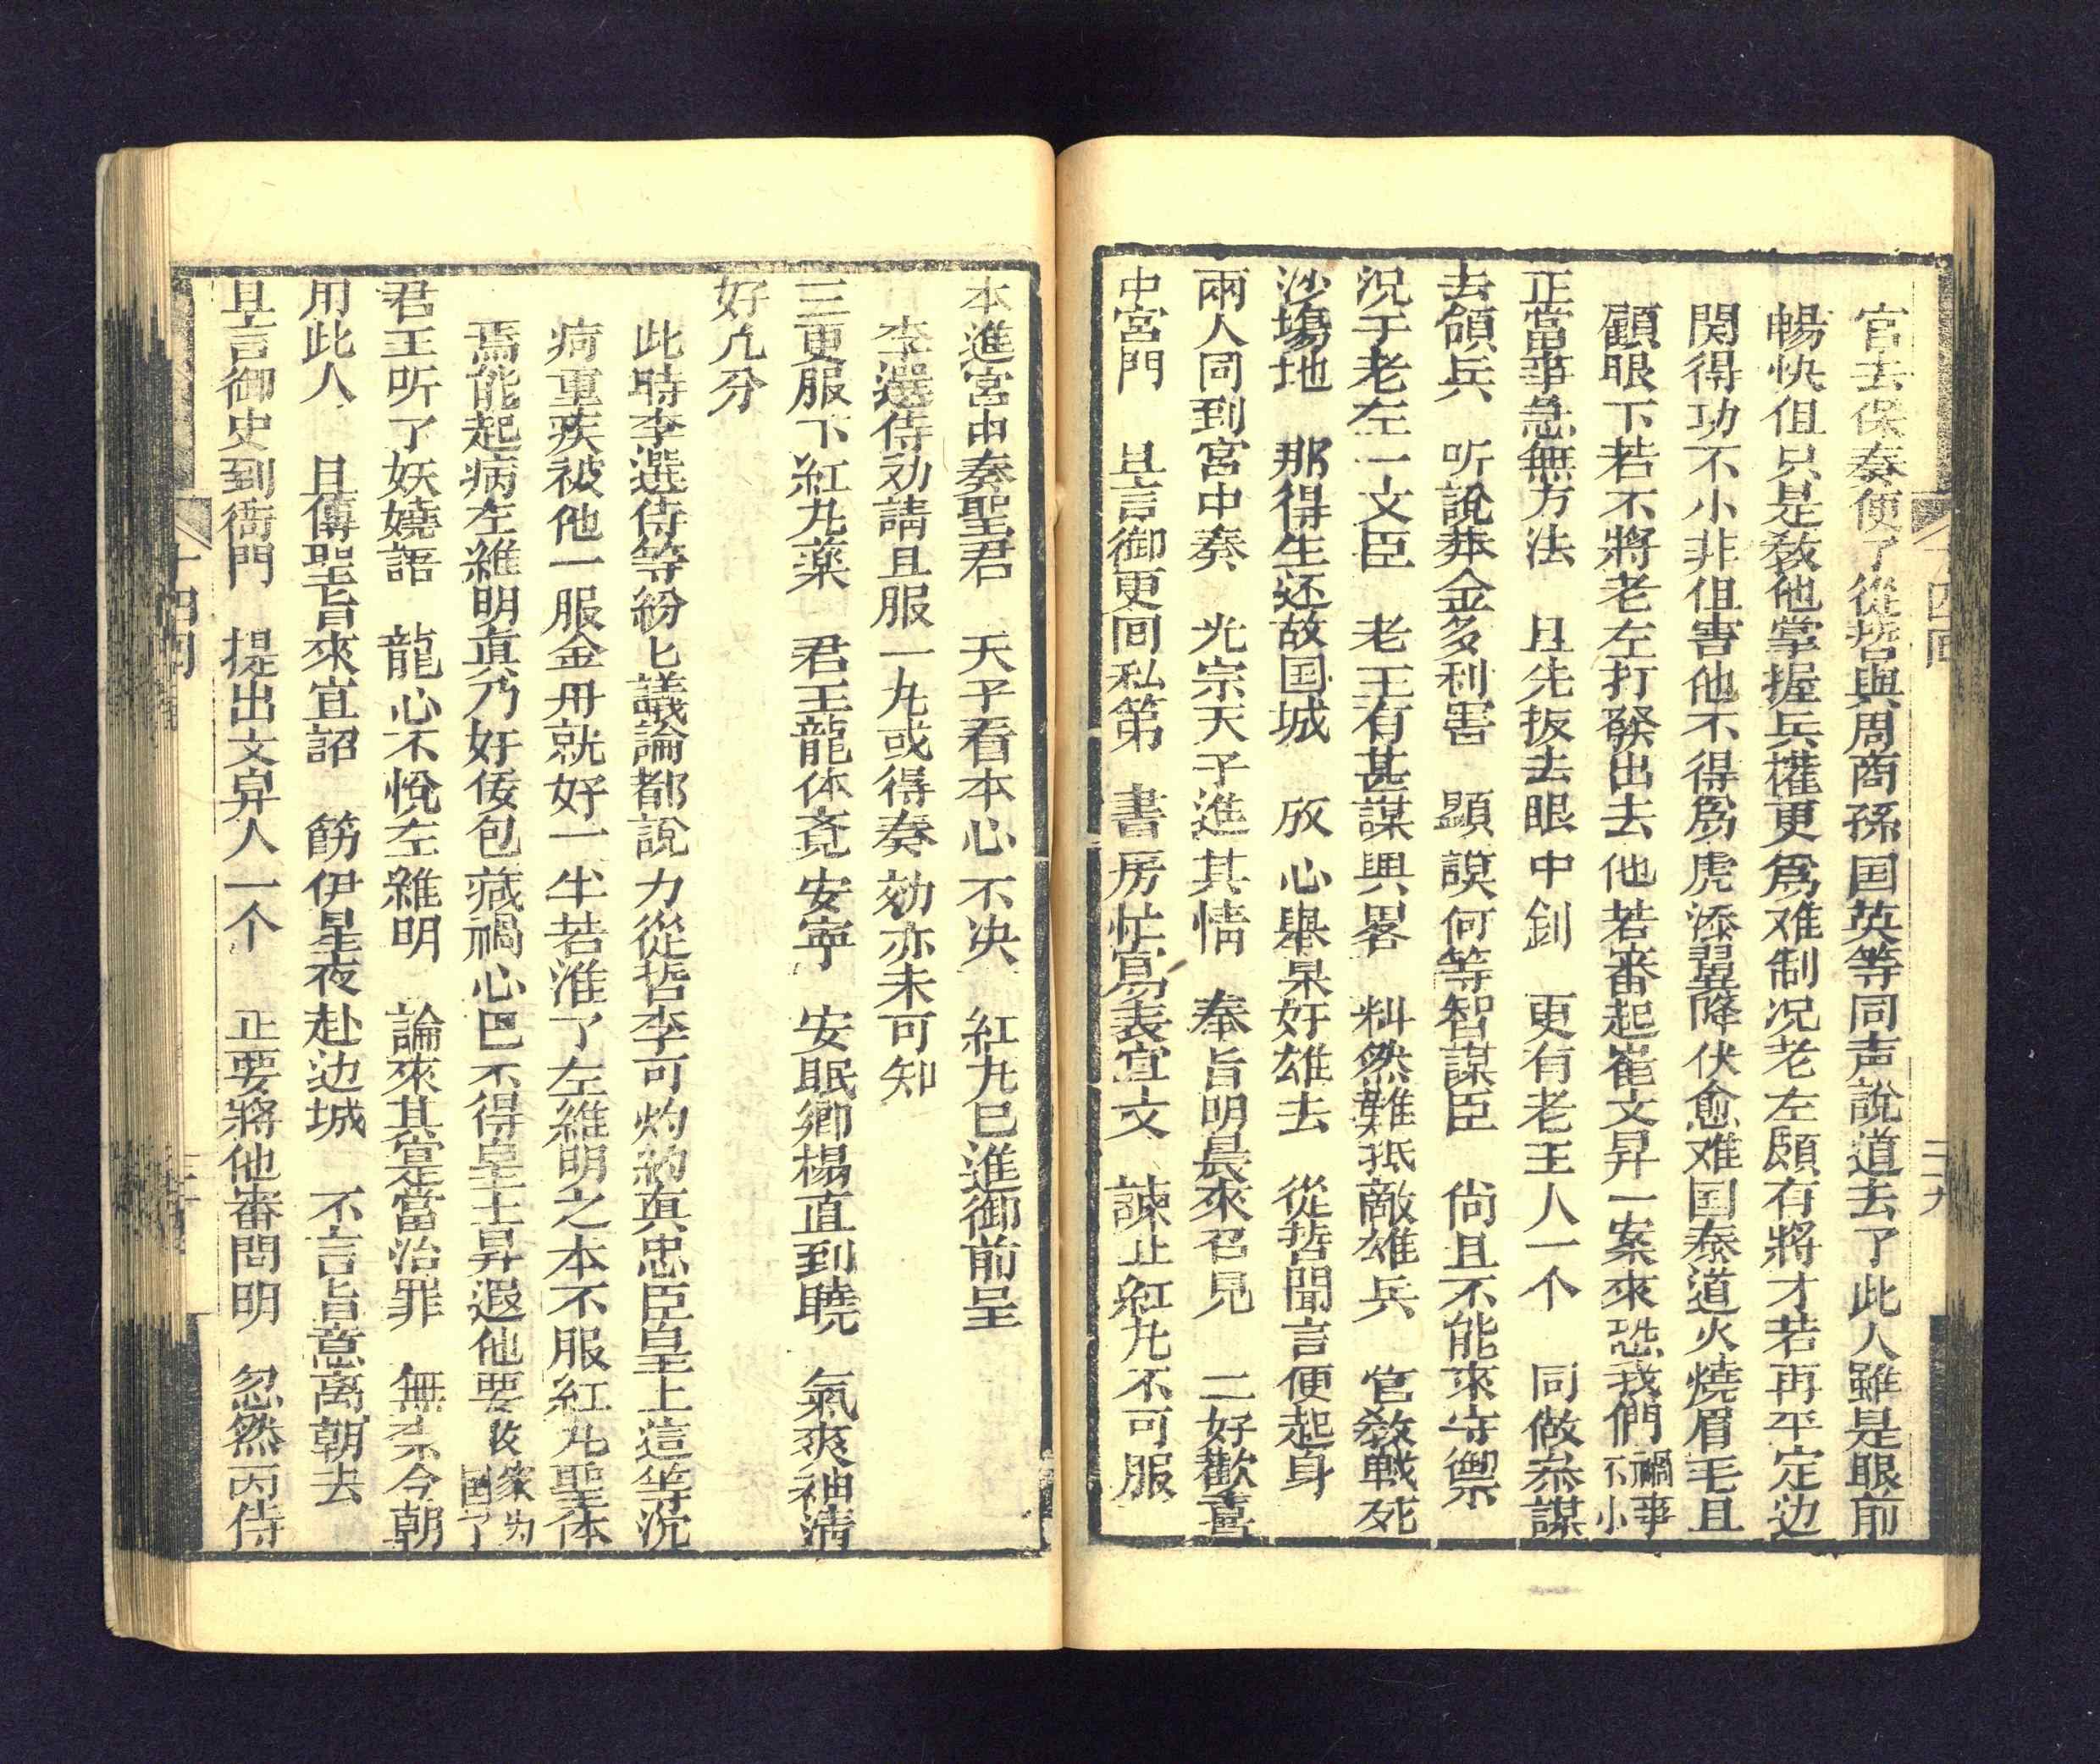 官去保奏便了從哲與周商孫国英等同声說道去了此人雖是眼前
暢快但只是教他掌握兵權更爲难制况老左頗有將才若再平定边
関得功不小非但害他不得爲虎添翼降伏愈难国泰道火燒眉毛且
顧眼下若不將老左打發出去他若審起崔文昇一案來恐我們禍事不小
正當事急無方法　且先扳去眼中釗　更有老王人一个　同做叅謀
去領兵　听說莽金多利害　顕謨何等智謀臣　尙且不能來守禦
况于老左一文臣　老王有甚謀與畧　糾然難抵敵雄兵　管教戰死
沙塲地　那得生还故国城　放心舉杲好雄去　從哲聞言便起身
兩人同到宮中奏　光宗天子進其情　奉旨明晨來召見　二好歡喜
中宮門　且言御更囘私第　書房忙寫表宜文　諫止紅丸不可服
十四回
二十九
本進宮中奏聖君　天子看本心不决　紅丸已進御前呈
李選侍効請且服一丸或得奏効亦未可知
三更服下紅丸薬　君王龍体竟安寧　安眠卿榻直到曉　氣爽神清
好几分
此時李選侍等紛匕議論都說力從哲李可灼約真忠臣皇上這等沉
病重疾被他一服金丹就好一半若准了左維明之本不服紅丸聖体
焉能起病左維明真乃奸佞包藏禍心巴不得皇上昇遐他要改家为国了
君王听了妖嬈語　龍心不悅左維明　論來其寔當治罪　無奈今朝
用此人　且傳聖旨來宣詔　飭伊星夜赴边城　不言旨意离朝去
且言御史到衙門　提出文昇人一个　正要將他審問明　忽然丙侍
十四回